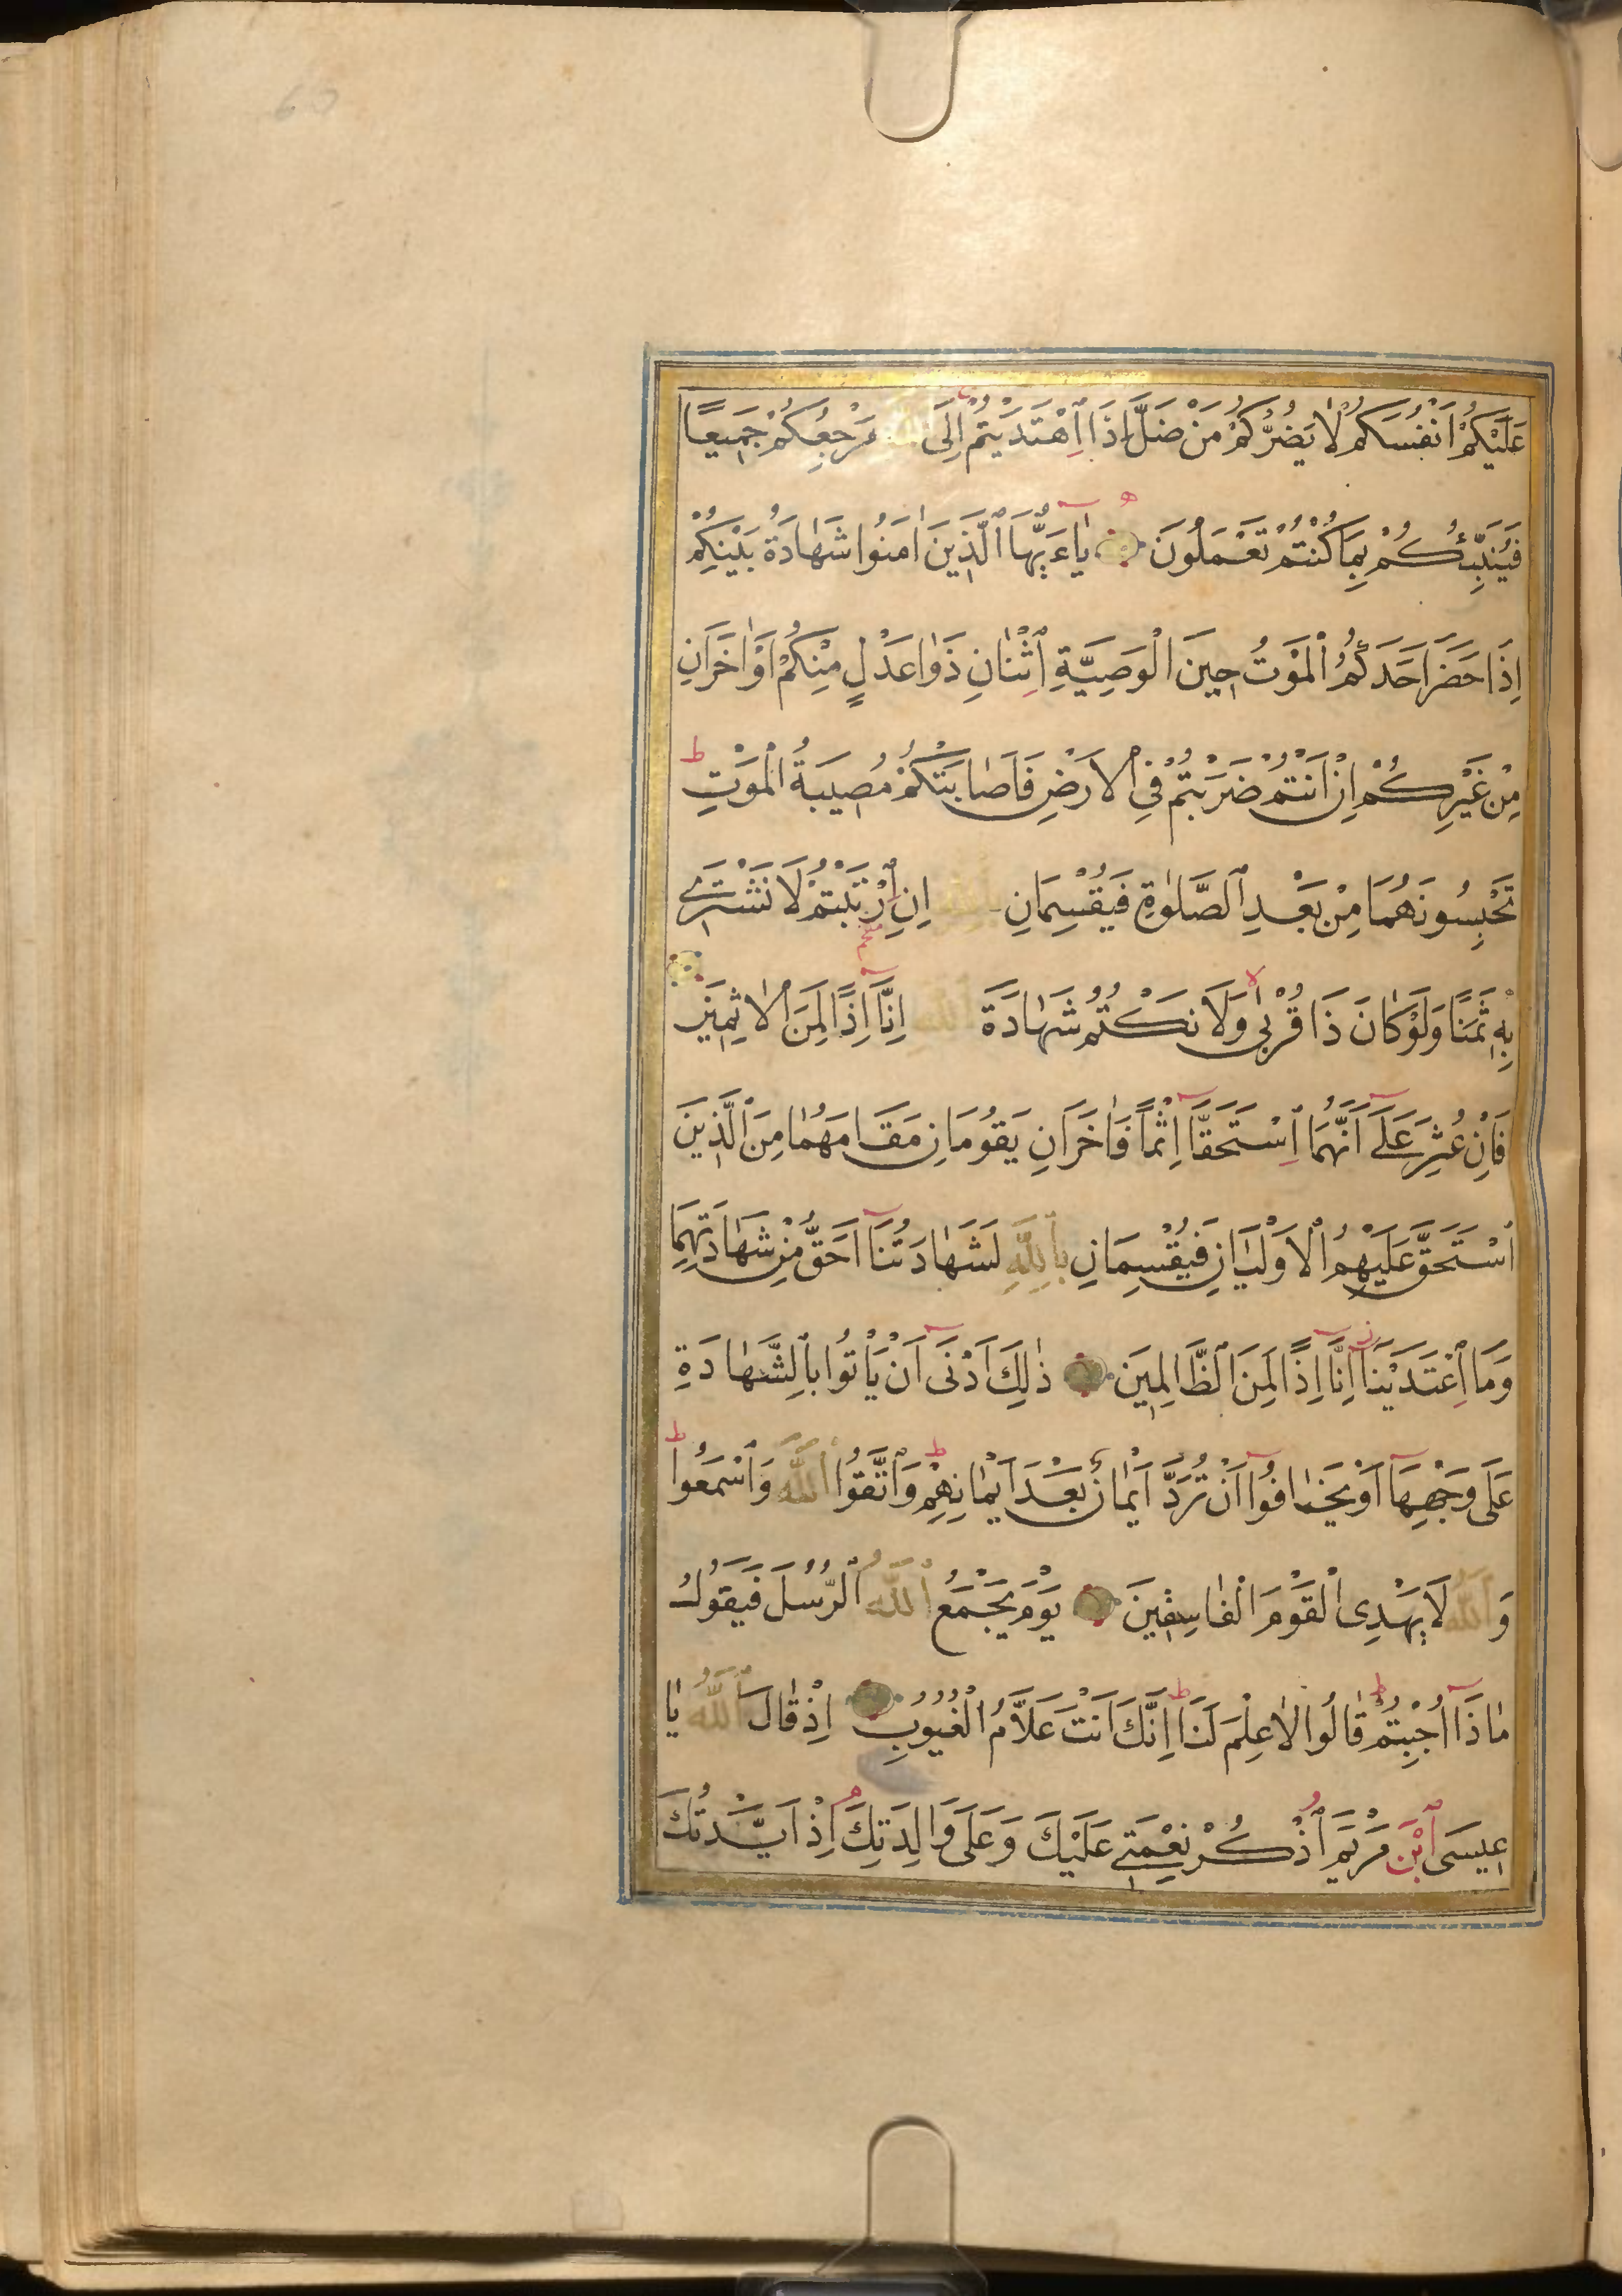 عَلَيْكُمْ اَنْفُسَكُمْ لَا يَضُرُّكُمْ مَنْ ضَلَّ اِذَا اهْتَدَيْتُمْ اِلَى اللّٰهِ مَرْجِعُكُمْ جَمِيعًا
فَيُنَبِّئُكُمْ بِمَا كُنْتُمْ تَعْمَلُونَ يَاءَيُّهَا الَّذِينَ اٰمَنُوا شَهَادَةُ بَيْنِكُمْ
اِذَا حَضَرَ اَحَدَكُمُ الْمَوْتُ حِينَ الْوَصِيَّةِ اثْنَانِ ذَوَا عَدْلٍ مِنْكُمْ اَوْ اٰخَرَانِ
مِنْ غَيْرِكُمْ اِنْ اَنْتُمْ ضَرَبْتُمْ فِي الْاَرْضِ فَاَصَابَتْكُمْ مُصِيبَةُ الْمَوْتِ ط
تَحْبِسُونَهُمَا مِنْ بَعْدِ الصَّلٰوةِ فَيُقْسِمَانِ بِاللّٰهِ اِنِ ارْتَبْتُمْ لَا نَشْتَرِي
بِهِ ثَمَنًا وَلَوْ كَانَ ذَا قُرْبٰى لا وَلَا نَكْتُمُ شَهَادَةَ اللّٰهِ اِنَّا اِذًا لَمِنَ الْاٰثِمِينَ
فَاِنْ عُثِرَ عَلَى اَنَّهُمَا اسْتَحَقَّا اِثْمًا فَاٰخَرَانِ يَقُومَانِ مَقَامَهُمَا مِنَ الَّذِينَ
اسْتَحَقَّ عَلَيْهِمُ الْاَوْلَيَانِ فَيُقْسِمَانِ بِاللّٰهِ لَشَهَادَتُنَا اَحَقُّ مِنْ شَهَادَتِهِمَا
وَمَا اعْتَدَيْنَا ز اِنَّا اِذًا لَمِنَ الظَّالِمِينَ ذٰلِكَ اَدْنَى اَنْ يَاْتُوا بِالشَّهَادَةِ
عَلَى وَجْهِهَا اَوْ يَخَافُوا اَنْ تُرَدَّ اَيْمَانٌ بَعْدَ اَيْمَانِهِمْ ط وَاتَّقُوا اللّٰهَ وَاسْمَعُوا ط
وَاللّٰهُ لَا يَهْدِى الْقَوْمَ الْفَاسِقِينَ يَوْمَ يَجْمَعُ اللّٰهُ الرُّسُلَ فَيَقُولُ
مَاذَا اُجِبْتُمْ ط قَالُوا لَا عِلْمَ لَنَا ط اِنَّكَ اَنْتَ عَلَّامُ الْغُيُوبِ اِذْ قَالَ اللّٰهُ يَا
عِيسَى ابْنَ مَرْيَمَ اذْكُرْ نِعْمَتِي عَلَيْكَ وَعَلَى وَالِدَتِكَ اِذْ اَيَّدْتُكَ